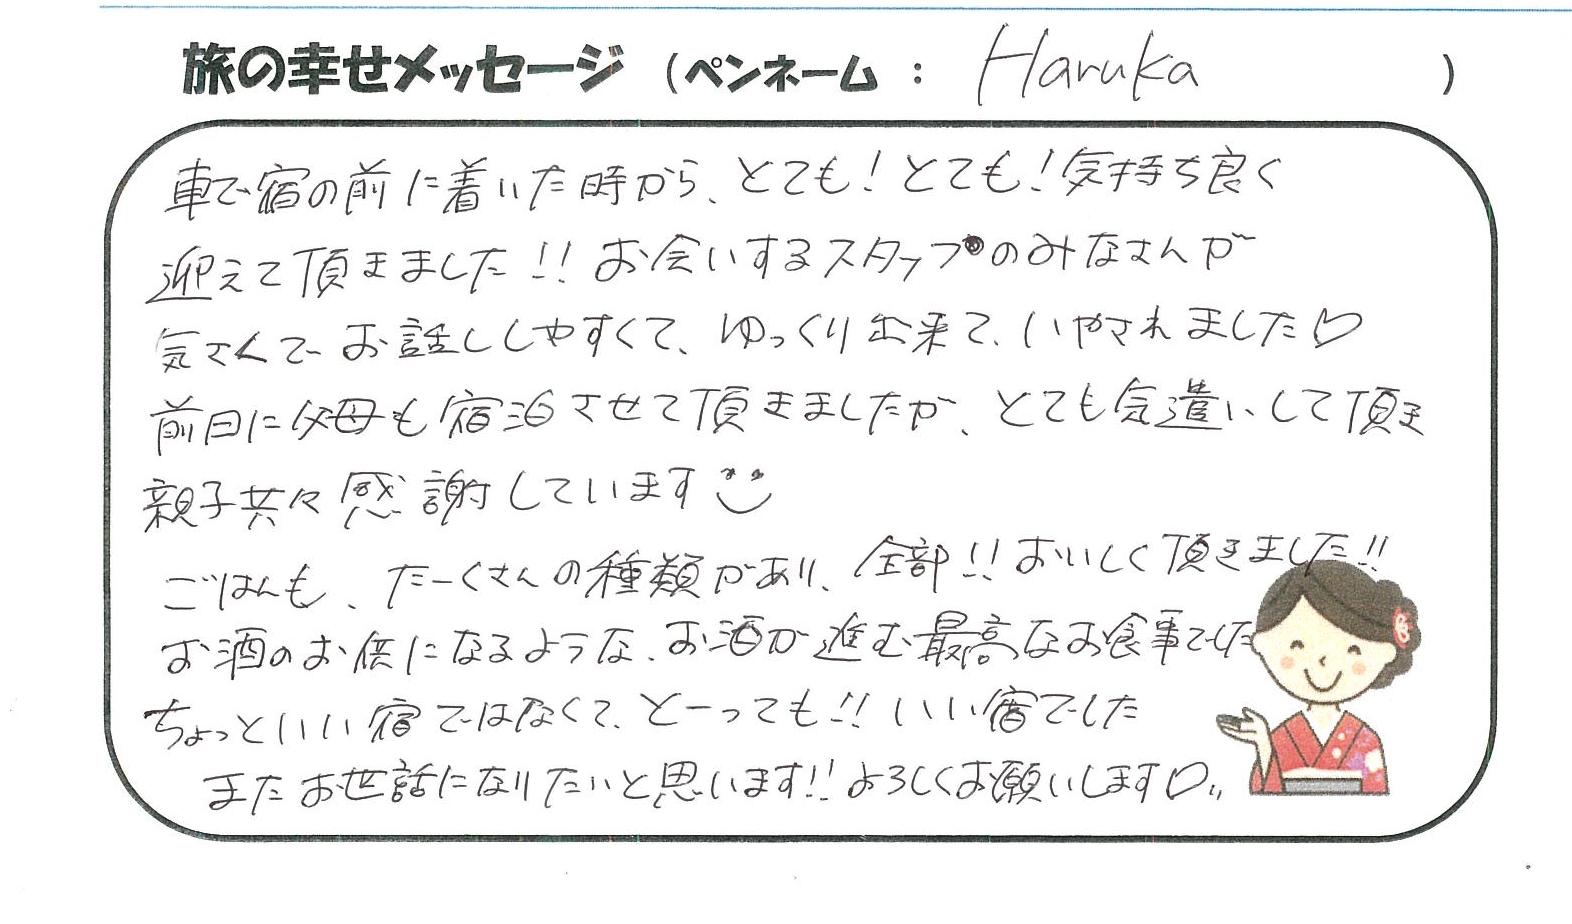 旅の幸せメッセージ (ペンネーム : Haruka )
車で宿の前に着いた時から、とても!とても!気持ち良く
迎えて頂きました!! お会いするスタッフのみなさんが
気さくで お話ししやすくて、ゆっくり出来て、いやされました♡
前日に父母も宿泊させて頂きましたが、とても気遣いして頂き
親子共々感謝しています
ごはんも、たーくさんの種類があり、全部!!おいしく頂きました!!
お酒のお供になるような、お酒が進む最高なお食事でした
ちょっといい宿ではなくて、とーっても!! いい宿でした
またお世話になりたいと思います!! よろしくお願いします♡